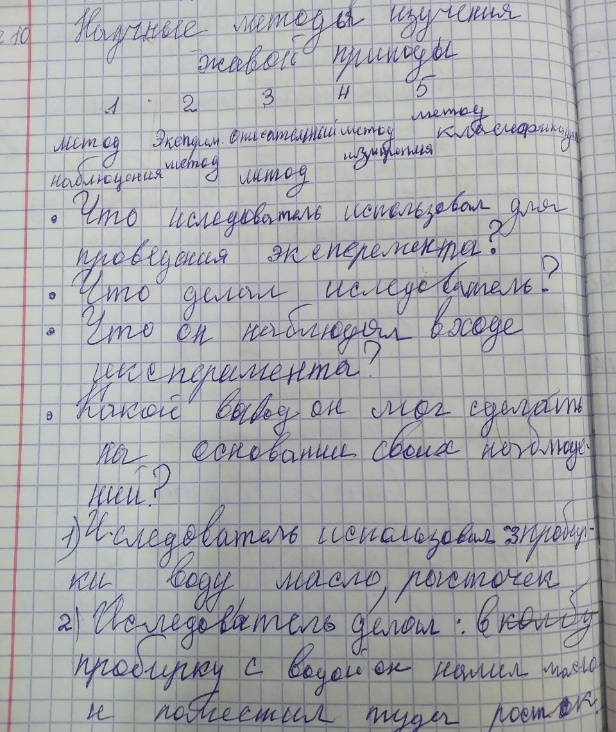 2.10
Научные методы изучения
живой природы
1 2 3 4 5
метод Экспдим. описательный метод метод класификации
наблюдения метод метод измирения
• Что иследователь использовал для
проведения эксперемента?
• Что делал иследователь?
• Что он наблюдал входе
иксперимента?
• Какой вывод он мог сделать
на основании своих наблюде-
ний?
1) Иследователь использовал 3 пробир-
ки воду масло, росточек
2) Иследователь делал: в колбу
пробирку с водой он налил масло
и поместил туда росток.